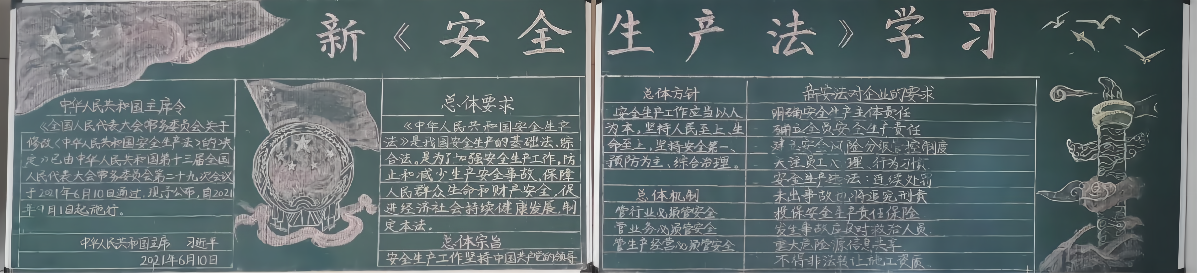 新《安全生产法》学习
中华人民共和国主席令
《全国人民代表大会常务委员会关于
修改〈中华人民共和国安全生产法〉的决
定》已由中华人民共和国第十三届全国
人民代表大会常务委员会第二十九次会议
于2021年6月10日通过,现予公布,自2021
年9月1日起施行。
中华人民共和国主席 习近平
2021年6月10日
总体要求
《中华人民共和国安全生产
法》是我国安全生产的基础法、综
合法。是为了加强安全生产工作,防
止和减少生产安全事故,保障
人民群众生命和财产安全,促
进经济社会持续健康发展,制
定本法。
总体宗旨
安全生产工作坚持中国共产党的领导
总体方针
安全生产工作应当以人
为本,坚持人民至上、生
命至上,坚持安全第一、
预防为主、综合治理。
总体机制
管行业必须管安全
管业务必须管安全
管生产经营必须管安全
新安法对企业的要求
明确安全生产主体责任
确立全员安全生产责任
建立安全风险分级管控制度
关注员工心理、行为习惯
安全生产违法:连续处罚
未出事故也将追究刑责
投保安全生产责任保险
发生事故后及时救治人员
重大危险源信息共享
不得非法转让施工资质